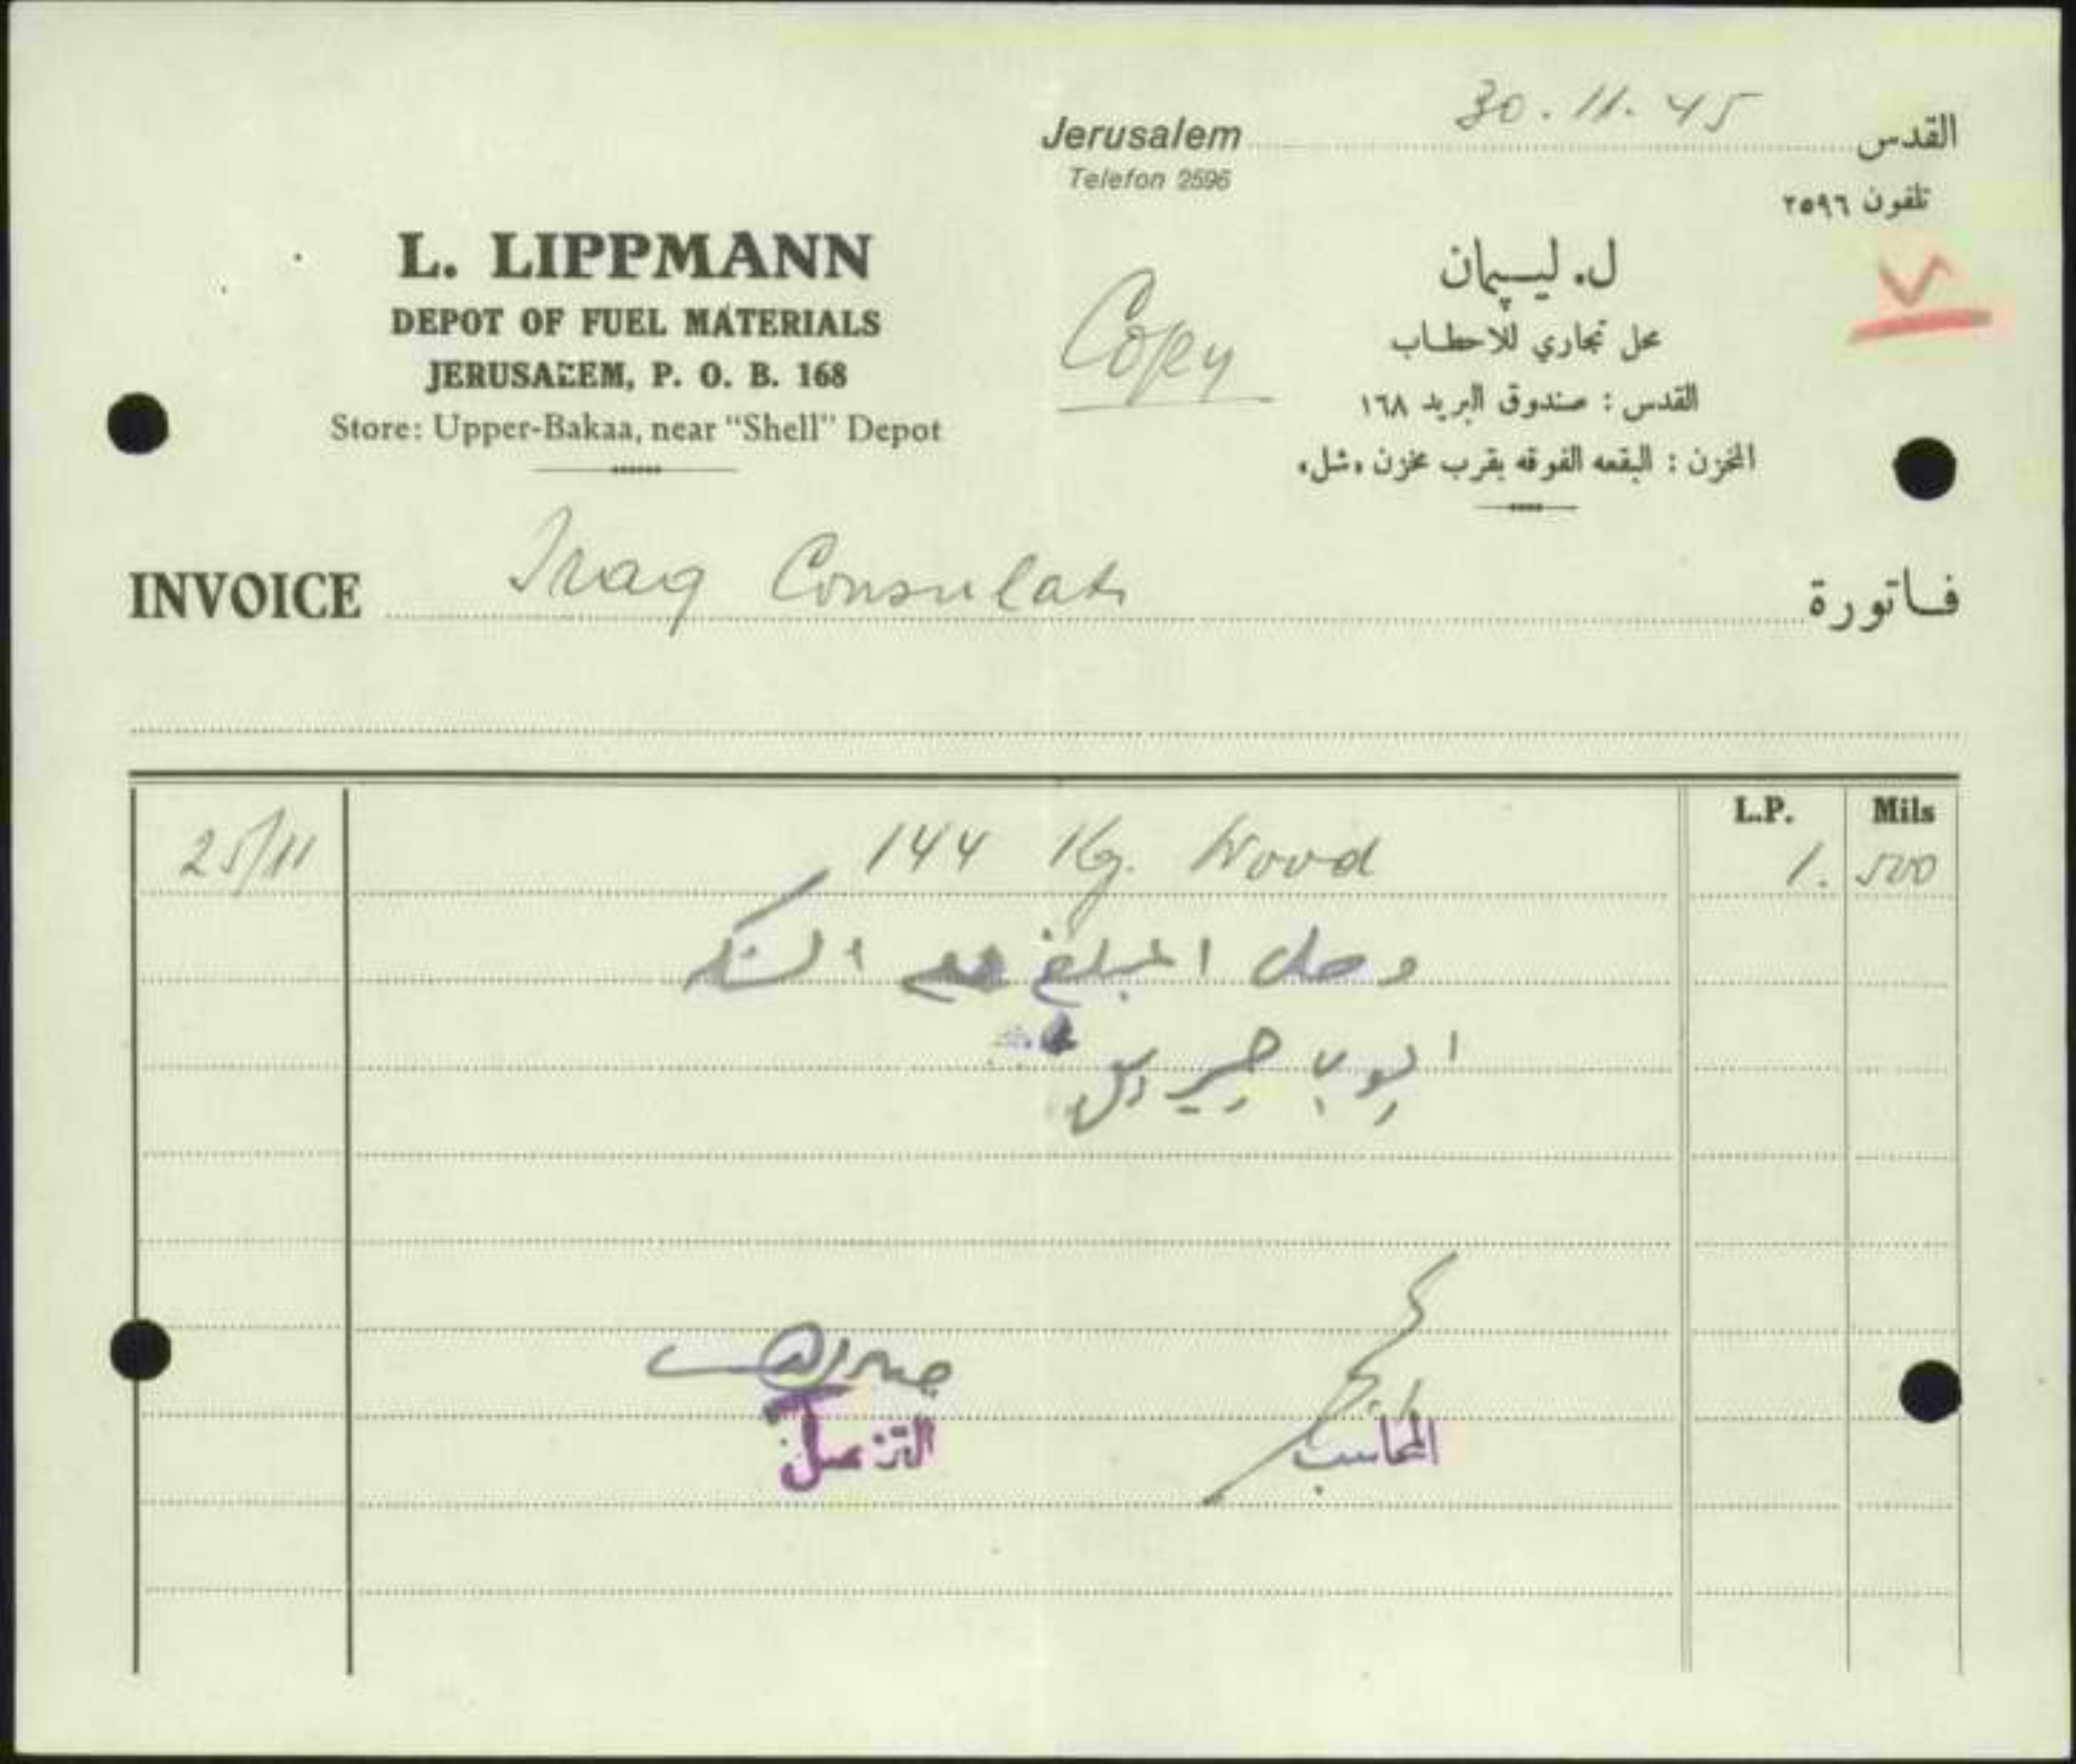 Jerusalem 30.11.45 القدس
Telefon 2596
تلفون ٢٥٩٦
L. LIPPMANN
DEPOT OF FUEL MATERIALS
JERUSALEM, P. O. B. 168
Store: Upper-Bakaa, near "Shell" Depot
Copy
ل. ليپمان
محل تجاري للاحطاب
القدس : صندوق البريد ١٦٨
المخزن : البقعه الفوقه بقرب مخزن «شل»
INVOICE Iraq Consulate فاتورة
L.P. Mils
25/11 144 Kg. Wood 1. 500
وصل المبلغ مع الشكر
ايوب
المحاسب
القنصل